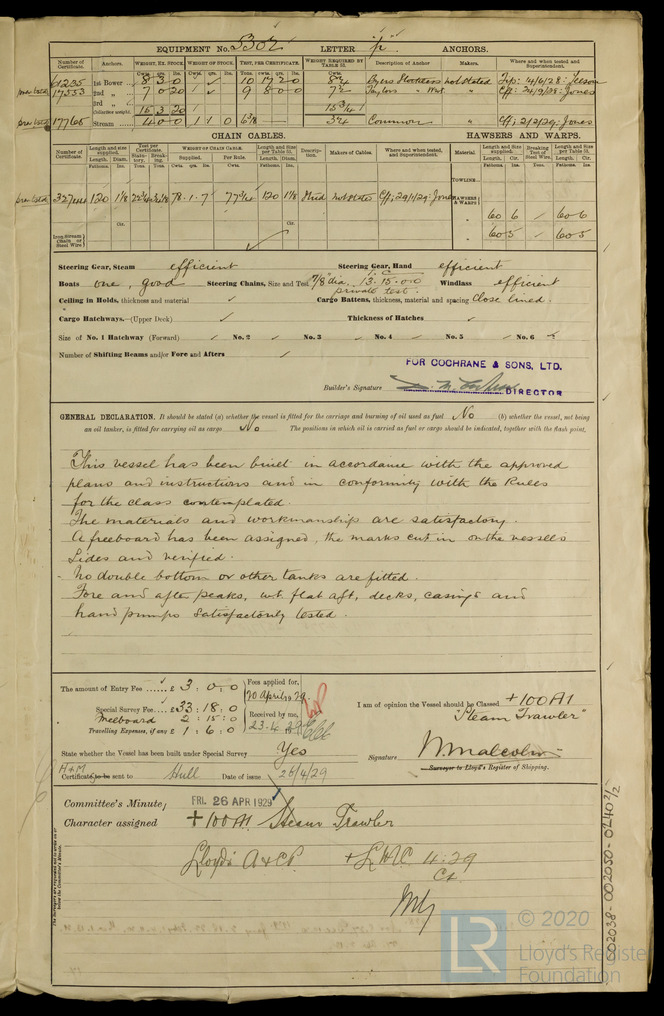 EQUIPMENT No. 5302 LETTER "p" ANCHORS.
Number of Certificate. Anchors. WEIGHT, EX. STOCK. WEIGHT OF STOCK. TEST, PER CERTIFICATE. WEIGHT REQUIRED BY TABLE 53. Description of Anchor Makers. Where and when tested and Superintendent.
61235 1st Bower 8 3 0 10 17 2 0 Byers Stockless not stated
17553 2nd " 7 0 20 9 8 0 0 Taylors Jones
3rd "
Collective weight. 15 3 20
17766 Stream 4 0 0 Common Jones
CHAIN CABLES. HAWSERS AND WARPS.
Number of Certificate. Length and size supplied. Test per Certificate. WEIGHT OF CHAIN CABLE. Length and size per Table 53. Description. Makers of Cables. Where and when tested, and Superintendent. Material Length and Size supplied. Breaking Test of Steel Wire. Length and Size per Table 53.
Length. Diam. Statutory. Breaking. Supplied. Per Rule. Length. Diam. Length. Cir. Length. Cir.
TOWLINE
120 1 1/8 78.1.7 77 3/4 120 1 1/8 Stud not stated HAWSERS & WARPS
60 6 60 6
60 5 60 5
Iron Stream Chain or Steel Wire
Steering Gear, Steam efficient Steering Gear, Hand efficient
Boats one, good Steering Chains, Size and Test 7/8" dia. 13.15.0.0 Windlass efficient
private test.
Ceiling in Holds, thickness and material Cargo Battens, thickness, material and spacing Close lined.
Cargo Hatchways.—(Upper Deck) Thickness of Hatches
Size of No. 1 Hatchway (Forward) No. 2 No. 3 No. 4 No. 5 No. 6
Number of Shifting Beams and/or Fore and Afters
FOR COCHRANE & SONS, LTD.
Builder's Signature DIRECTOR
GENERAL DECLARATION. It should be stated (a) whether the vessel is fitted for the carriage and burning of oil used as fuel No (b) whether the vessel, not being
an oil tanker, is fitted for carrying oil as cargo No The positions in which oil is carried as fuel or cargo should be indicated, together with the flash point.
This vessel has been built in accordance with the approved
plans and instructions and in conformity with the Rules
for the class contemplated.
The materials and workmanship are satisfactory.
A freeboard has been assigned, the marks cut in on the vessels
sides and verified.
No double bottom or other tanks are fitted.
Fore and after peaks, w.t. flat aft, decks, casings and
hand pumps satisfactorily tested.
The amount of Entry Fee ...... £ 3 : 0 : 0 Fees applied for,
20 April 1929.
Special Survey Fee £ 33 : 18 : 0
Freeboard 2 : 15 : 0 Received by me,
Travelling Expenses, if any £ 1 : 6 : 0 23.4.1929
I am of opinion the Vessel should be Classed +100A1
"Steam Trawler"
State whether the Vessel has been built under Special Survey Yes
Signature W. Malcolm
Surveyor to Lloyd's Register of Shipping.
Certificate to be sent to Hull Date of issue 26/4/29
Committee's Minute FRI. 26 APR 1929
Character assigned +100A1 Steam Trawler
Lloyd's A & CP. + LMC 4.29
The Surveyors are requested not to write on or below the Committee's Minute.
002038-002050-0240 2/2
LR
© 2020
Lloyd's Register
Foundation